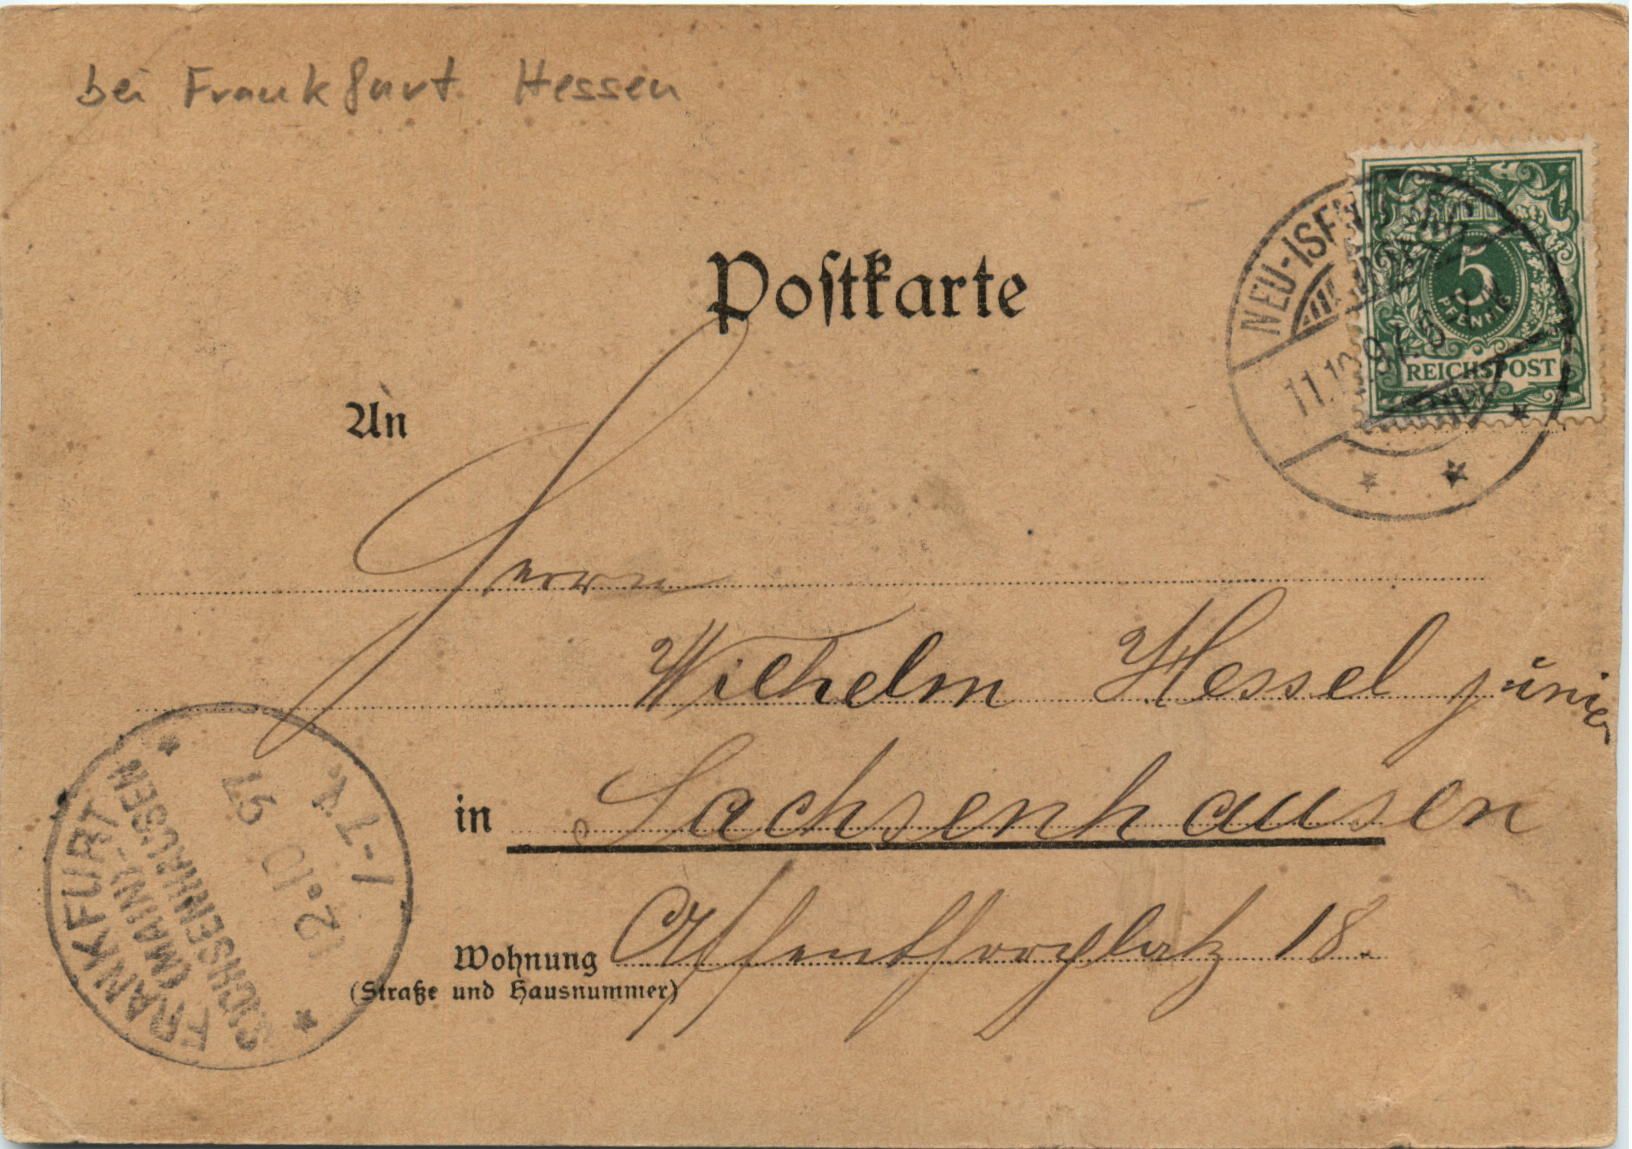 bei Frankfurt Hessen
Postkarte
NEU-ISENBURG
11.10.97. 5-
5
PFENNIG
REICHSPOST
An
Herrn
Wilhelm Hessel junier
in Sachsenhausen
Wohnung Affenthorplatz 18.
(Straße und Hausnummer)
FRANKFURT
(MAIN)-
SACHSENHAUSEN
12.10 97
1-7V.